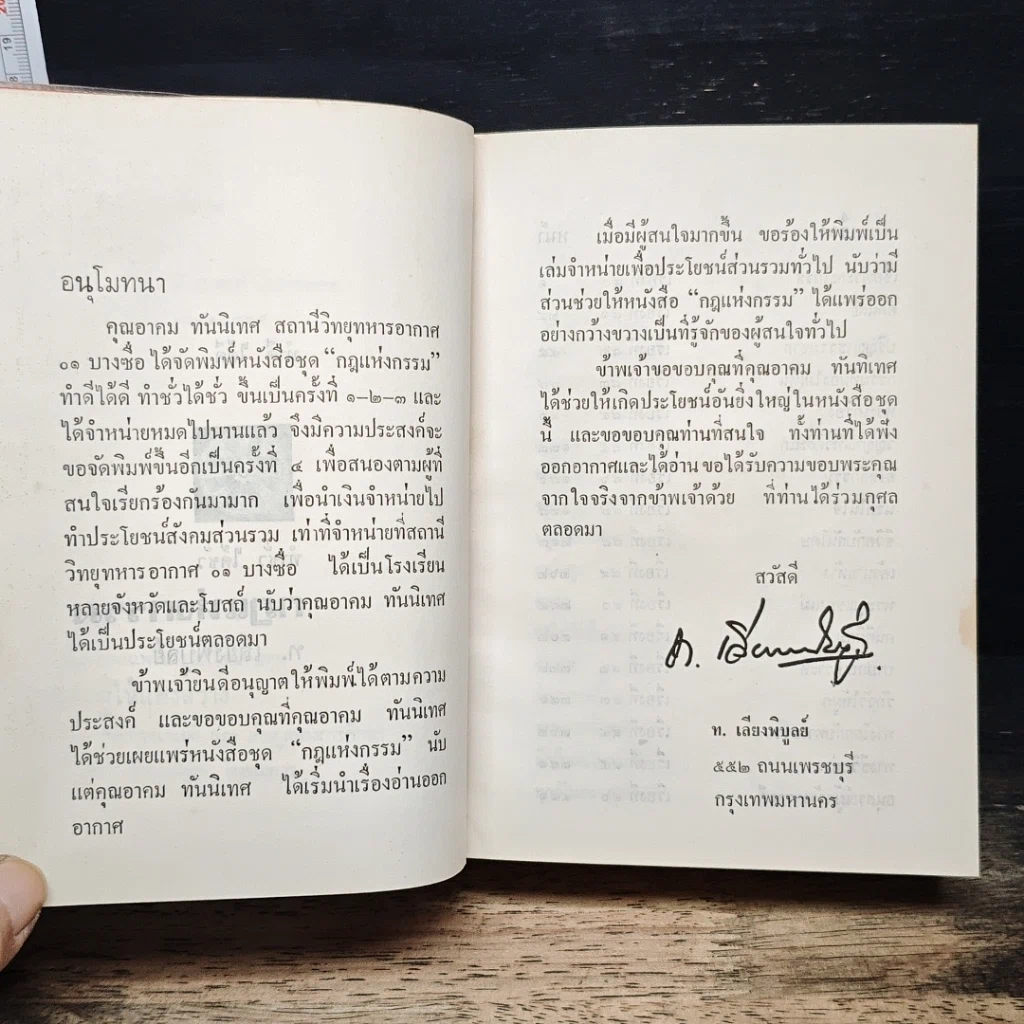 อนุโมทนา
คุณอาคม ทันนิเทศ สถานีวิทยุทหารอากาศ
๐๑ บางซื่อ ได้จัดพิมพ์หนังสือชุด “กฎแห่งกรรม”
ทำดีได้ดี ทำชั่วได้ชั่ว ขึ้นเป็นครั้งที่ ๑–๒–๓ และ
ได้จำหน่ายหมดไปนานแล้ว จึงมีความประสงค์จะ
ขอจัดพิมพ์ขึ้นอีกเป็นครั้งที่ ๔ เพื่อสนองตามผู้ที่
สนใจเรียกร้องกันมามาก เพื่อนำเงินจำหน่ายไป
ทำประโยชน์สังคมส่วนรวม เท่าที่จำหน่ายที่สถานี
วิทยุทหารอากาศ ๐๑ บางซื่อ ได้เป็นโรงเรียน
หลายจังหวัดและโบสถ์ นับว่าคุณอาคม ทันนิเทศ
ได้เป็นประโยชน์ตลอดมา
ข้าพเจ้ายินดีอนุญาตให้พิมพ์ได้ตามความ
ประสงค์ และขอขอบคุณที่คุณอาคม ทันนิเทศ
ได้ช่วยเผยแพร่หนังสือชุด “กฎแห่งกรรม” นับ
แต่คุณอาคม ทันนิเทศ ได้เริ่มนำเรื่องอ่านออก
อากาศ
เมื่อมีผู้สนใจมากขึ้น ขอร้องให้พิมพ์เป็น
เล่มจำหน่ายเพื่อประโยชน์ส่วนรวมทั่วไป นับว่ามี
ส่วนช่วยให้หนังสือ “กฎแห่งกรรม” ได้แพร่ออก
อย่างกว้างขวางเป็นที่รู้จักของผู้สนใจทั่วไป
ข้าพเจ้าขอขอบคุณที่คุณอาคม ทันทิเทศ
ได้ช่วยให้เกิดประโยชน์อันยิ่งใหญ่ในหนังสือชุด
นี้ และขอขอบคุณท่านที่สนใจ ทั้งท่านที่ได้ฟัง
ออกอากาศและได้อ่าน ขอได้รับความขอบพระคุณ
จากใจจริงจากข้าพเจ้าด้วย ที่ท่านได้ร่วมกุศล
ตลอดมา
สวัสดี
ท. เลียงพิบูลย์
ท. เลียงพิบูลย์
๕๕๒ ถนนเพรชบุรี
กรุงเทพมหานคร